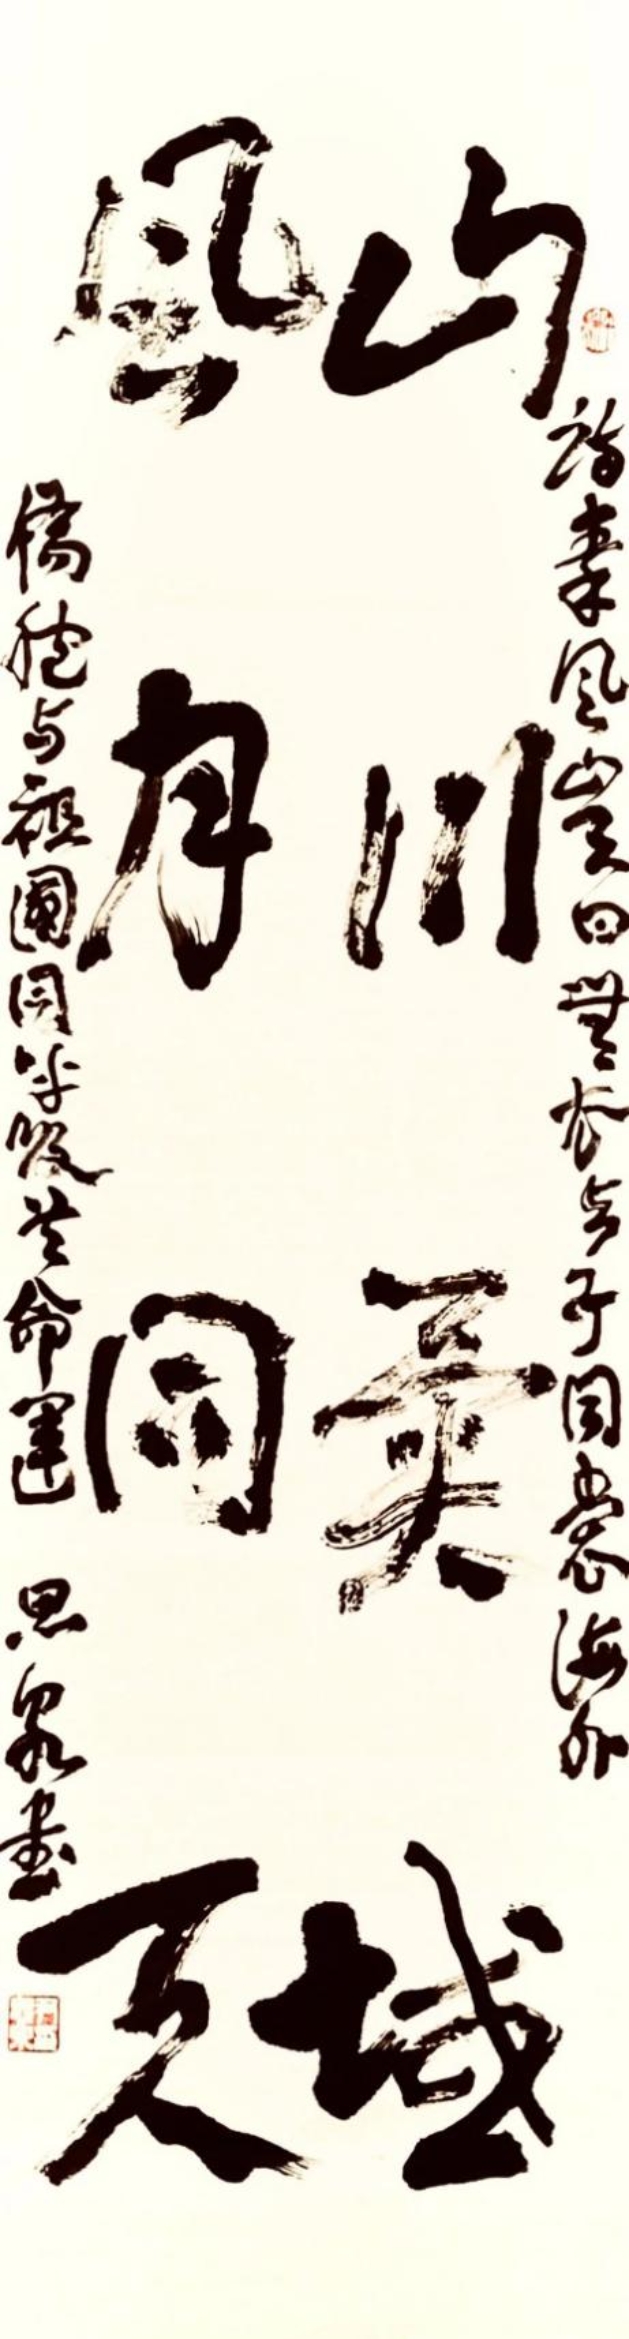 山川異域
風月同天
詩秦風豈曰無衣与子同裳海外
僑胞与祖國同呼吸共命運 思泉書